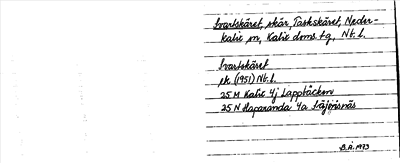 Svartskäret, skär, Täskskäret, Neder-
kalix sn, Kalix doms. tg., Nb. l.
Svartskäret
sk. (1951) Nb. l.
25 M Kalix 4j Lapptåcken
25 N Haparanda 4a
B.Å. 1973